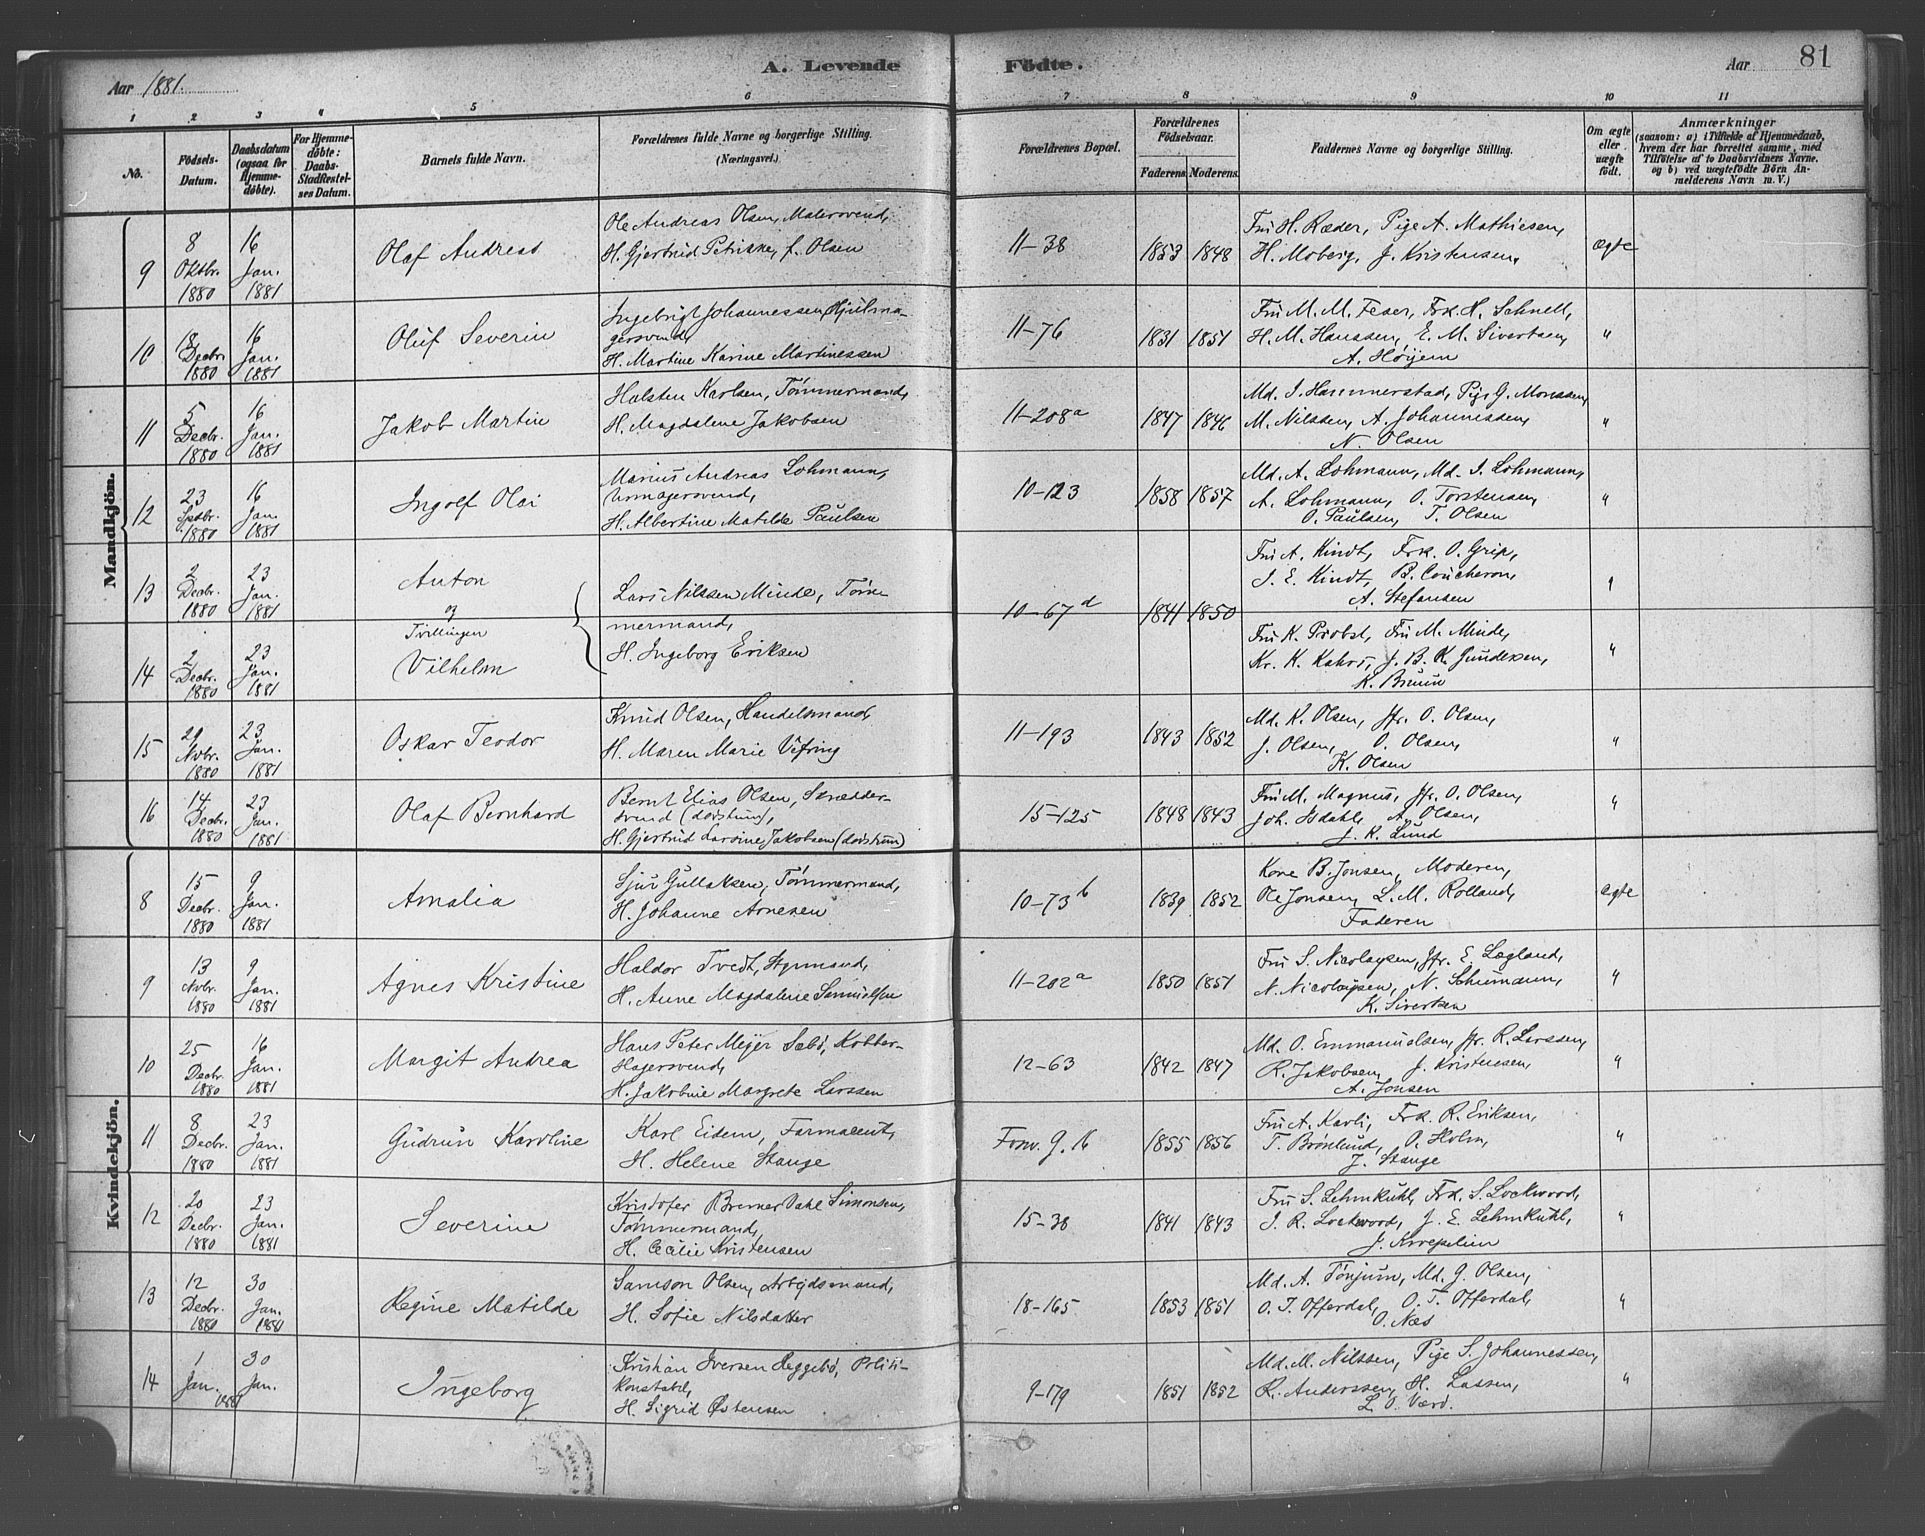 Aar 1881.
A. Levende Födte.
Aar
81
1 2 3 4 5 6 7 8 9 10 11
No.
Födsels-Datum.
Daabsdatum (ogsaa for Hjemme-døbte).
For Hjemme-døbte: Daabs-Stadfæstel-ses Datum.
Barnets fulde Navn.
Forældrenes fulde Navne og borgerlige Stilling. (Næringsvei.)
Forældrenes Bopæl.
Forældrenes Födselsaar.
Faderens. Moderens.
Faddernes Navne og borgerlige Stilling.
Om ægte eller uægte født.
Anmærkninger
(saasom: a) i Tilfælde af Hjemmedaab, hvem der har forrettet samme, med Tilføielse af to Daabsvidners Navne. og b) ved uægtefødte Börn An-melderens Navn m. V.)
Mandkjön.
9 8 Oktbr. 1880 16 Jan. 1881 Olaf Andreas Ole Andreas Olsen, Malersvend, H. Gjertrud Petrikke, f. Olsen 11-38 1853 1848 Fru H. Ræder, Pige A. Mathiesen, H. Moberg, J. Kristensen, ægte
10 18 Decbr. 1880 16 Jan. 1881 Oluf Severin Ingebrigt Johannessen, Hjulma-gersvend, H. Martine Karine Martinessen 11-76 1831 1851 Fru M. M. Feser, Frk. H. Schnell, H. M. Hanssen, E. M. Sivertsen, A. Høijem "
11 5 Decbr. 1880 16 Jan. 1881 Jakob Martin Halsten Karlsen, Tømmermand, H. Magdalene Jakobsen 11-208a 1847 1846 Md. I. Hammerstad, Pige G. Monssen, M. Nilssen, A. Johannessen, N. Olsen "
12 23 Septbr. 1880 16 Jan. 1881 Ingolf Olai Marius Andreas Lohmann, Urmagersvend, H. Albertine Matilde Paulsen 10-123 1858 1857 Md. A. Lohmann, Md. I. Lohmann, A. Lohmann, O. Torstensen, O. Paulsen, T. Olsen "
13 2 Decbr. 1880 23 Jan. 1881 Anton og Lars Nilssen Minde, Tøm-mermand, H. Ingeborg Eriksen 10-67d 1841 1850 Fru A. Kindt, Frk. O. Grip, J. E. Kindt, B. Coucheron, A. Stefansen "
14 2 Decbr. 1880 23 Jan. 1881 Tvillingen Vilhelm Fru K. Probst, Fru M. Minde, Kr. K. Kahrs, J. B. K. Gundersen, K. Bruun "
15 29 Novbr. 1880 23 Jan. 1881 Oskar Teodor Knud Olsen, Handelsmand, H. Maren Marie Vefring 11-193 1843 1852 Md. K. Olsen, Jfr. O. Olsen, J. Olsen, O. Olsen, K. Olsen "
16 14 Decbr. 1880 23 Jan. 1881 Olaf Bernhard Bernt Elias Olsen, Skrædder-svend (døvstum), H. Gjertrud Larsine Jakobsen (døvstum) 15-125 1848 1843 Fru M. Magnus, Jfr. O. Olsen, Joh. Isdahl, A. Olsen, J. K. Lund "
Kvindekjön.
8 15 Decbr. 1880 9 Jan. 1881 Amalia Sjur Gullaksen, Tømmermand, H. Johanne Arnesen 10-73b 1839 1852 Kone B. Jonsen, Moderen, Ole Jonsen, L. M. Rolland, Faderen ægte
9 13 Novbr. 1880 9 Jan. 1881 Agnes Kristine Haldor Tvedt, Styrmand, H. Anne Magdalene Samuelsen 11-202a 1850 1851 Fru S. Nicolaysen, Jfr. E. Lægland, N. Nicolaysen, N. Schumann, K. Sivertsen "
10 25 Decbr. 1880 16 Jan. 1881 Margit Andrea Hans Peter Meyer Sæbø, Kobber-slagersvend, H. Jakobine Margrete Larssen 12-63 1842 1847 Md. O. Emmanuelsen, Jfr. R. Larssen, R. Jakobsen, J. Kristensen, A. Jonsen "
11 8 Decbr. 1880 23 Jan. 1881 Gudrun Karoline Karl Eidem, Farmaceut, H. Helene Stange Forv. g. 16 1855 1856 Fru A. Kavli, Frk. R. Eriksen, T. Brønlund, O. Holm, J. Stange "
12 20 Decbr. 1880 23 Jan. 1881 Severine Kristofer Bremer Dahl Simonsen, Tømmermand, H. Cecilie Kristensen 15-38 1841 1843 Fru S. Lehmkuhl, Frk. S. Lockwood, J. R. Lockwood, J. E. Lehmkuhl, "
13 12 Decbr. 1880 30 Jan. 1881 Regine Matilde Samson Olsen, Arbejdsmand, H. Sofie Nilsdatter 18-165 1853 1851 Md. A. Tønjum, Md. G. Olsen, O. T. Offerdal, O. T. Offerdal, O. Næs "
14 1 Jan. 1881 30 Jan. Ingeborg Kristian Iversen Reggebø, Politi-konstabel, H. Sigrid Østensen 9-179 1851 1852 Md. M. Nilssen, Pige S. Johannessen, R. Anderssen, H. Lassen, L. O. Værø. "